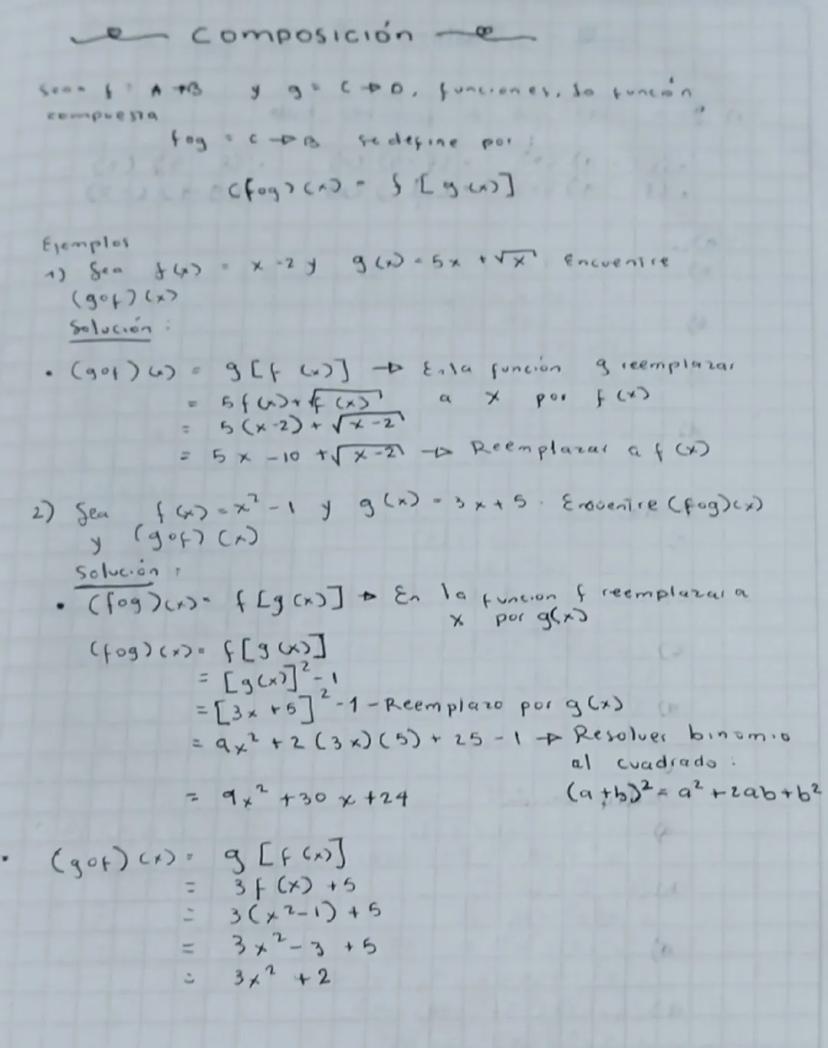 Composición
Sean f : A → B y g = C → D, funciones, la función
compuesta
fog = C → B se define por :
(fog)(x) = f [g(x)]
Ejemplos
1) Sea f(x) = x - 2 y g(x) = 5x + √x Encuentre
(gof)(x)
Solución :
• (gof)(x) = g[f(x)] → En la función g reemplazar
= 5f(x) + √f(x) a x por f(x)
= 5(x-2) + √x-2
= 5x - 10 + √x-2 → Reemplazar a f(x)
2) Sea f(x) = x² - 1 y g(x) = 3x + 5. Encuentre (fog)(x)
y (gof)(x)
Solución :
• (fog)(x) = f[g(x)] → En la funcion f reemplazar a
x por g(x)
(fog)(x) = f[g(x)]
= [g(x)]² - 1
= [3x + 5]² - 1 - Reemplazo por g(x)
= 9x² + 2(3x)(5) + 25 - 1 → Resolver binomio
al cuadrado :
= 9x² + 30x + 24 (a+b)² = a² + 2ab + b²
• (gof)(x) = g[f(x)]
= 3f(x) + 5
= 3(x²-1) + 5
= 3x² - 3 + 5
= 3x² + 2